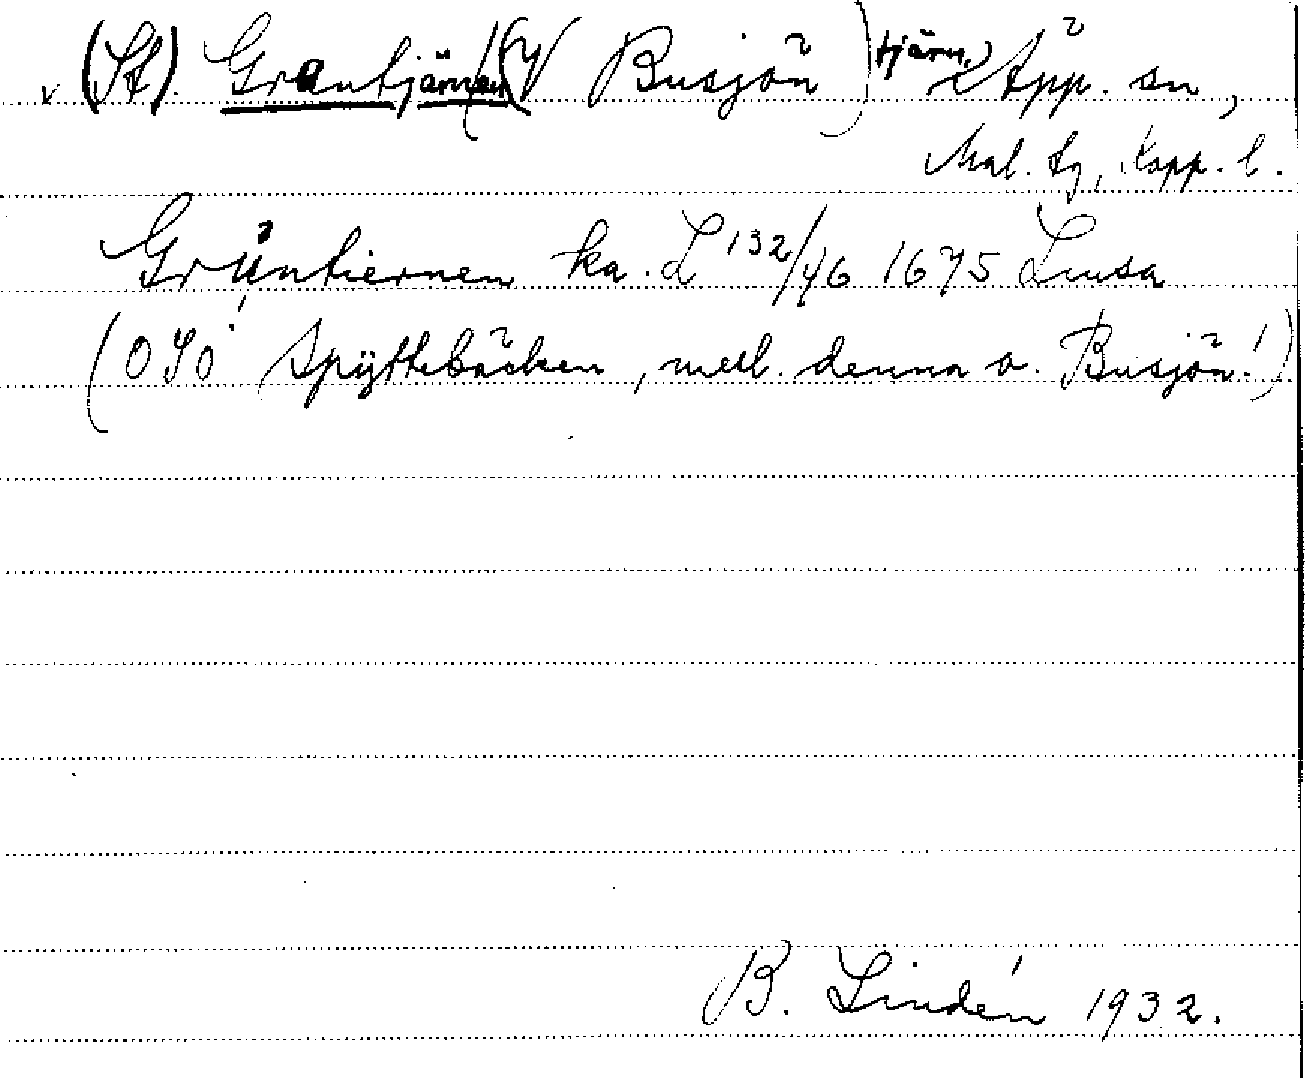 v (St). Grantjärnen (V Busjön) tjärn, Äpp. sn,
Mal. tg, Kopp. l.
Gråntiernen ka. L 132/46 1675 Limsa
(OSO Spyttebäcken, mell. denna o. Busjön!)
B. Lindén 1932.